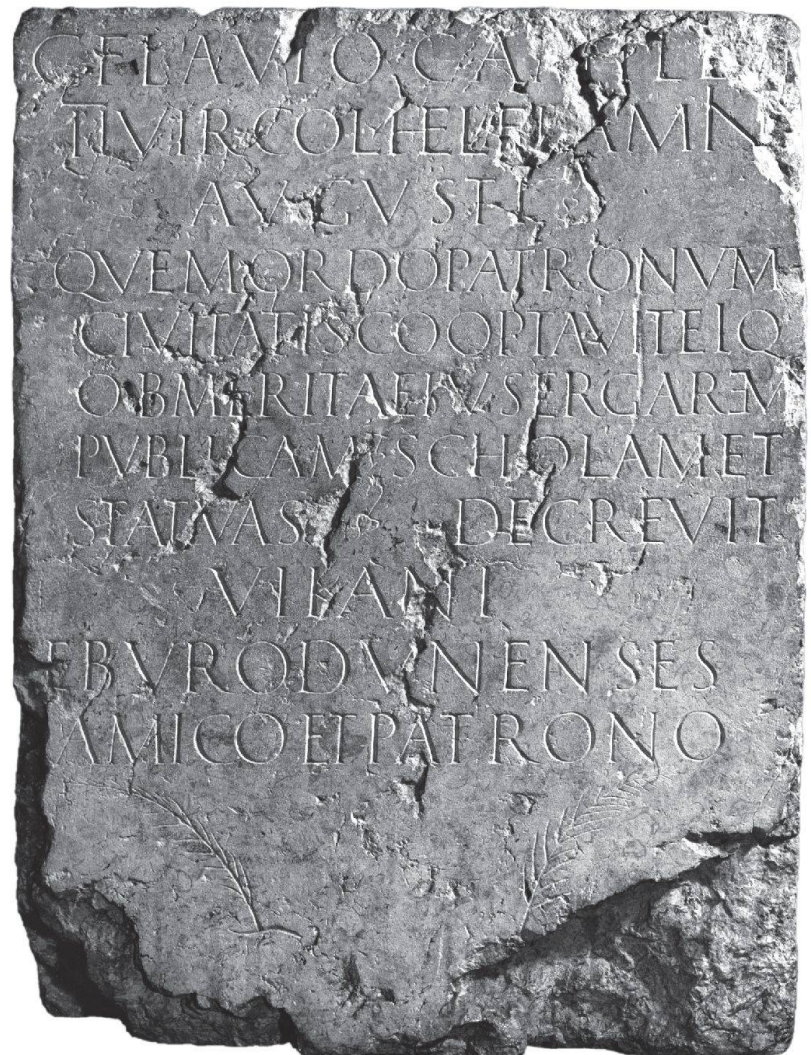 C FLAVIO CAMILL
IIVIR COL HEL FLAMIN
AVGVSTI
QVEM ORDO PATRONVM
CIVITATIS COOPTAVIT EIQ
OB MERITA EIVS ERGA REM
PVBLICAM SCHOLAM ET
STATVAS DECREVIT
VIKANI
EBVRODVNENSES
AMICO ET PATRONO